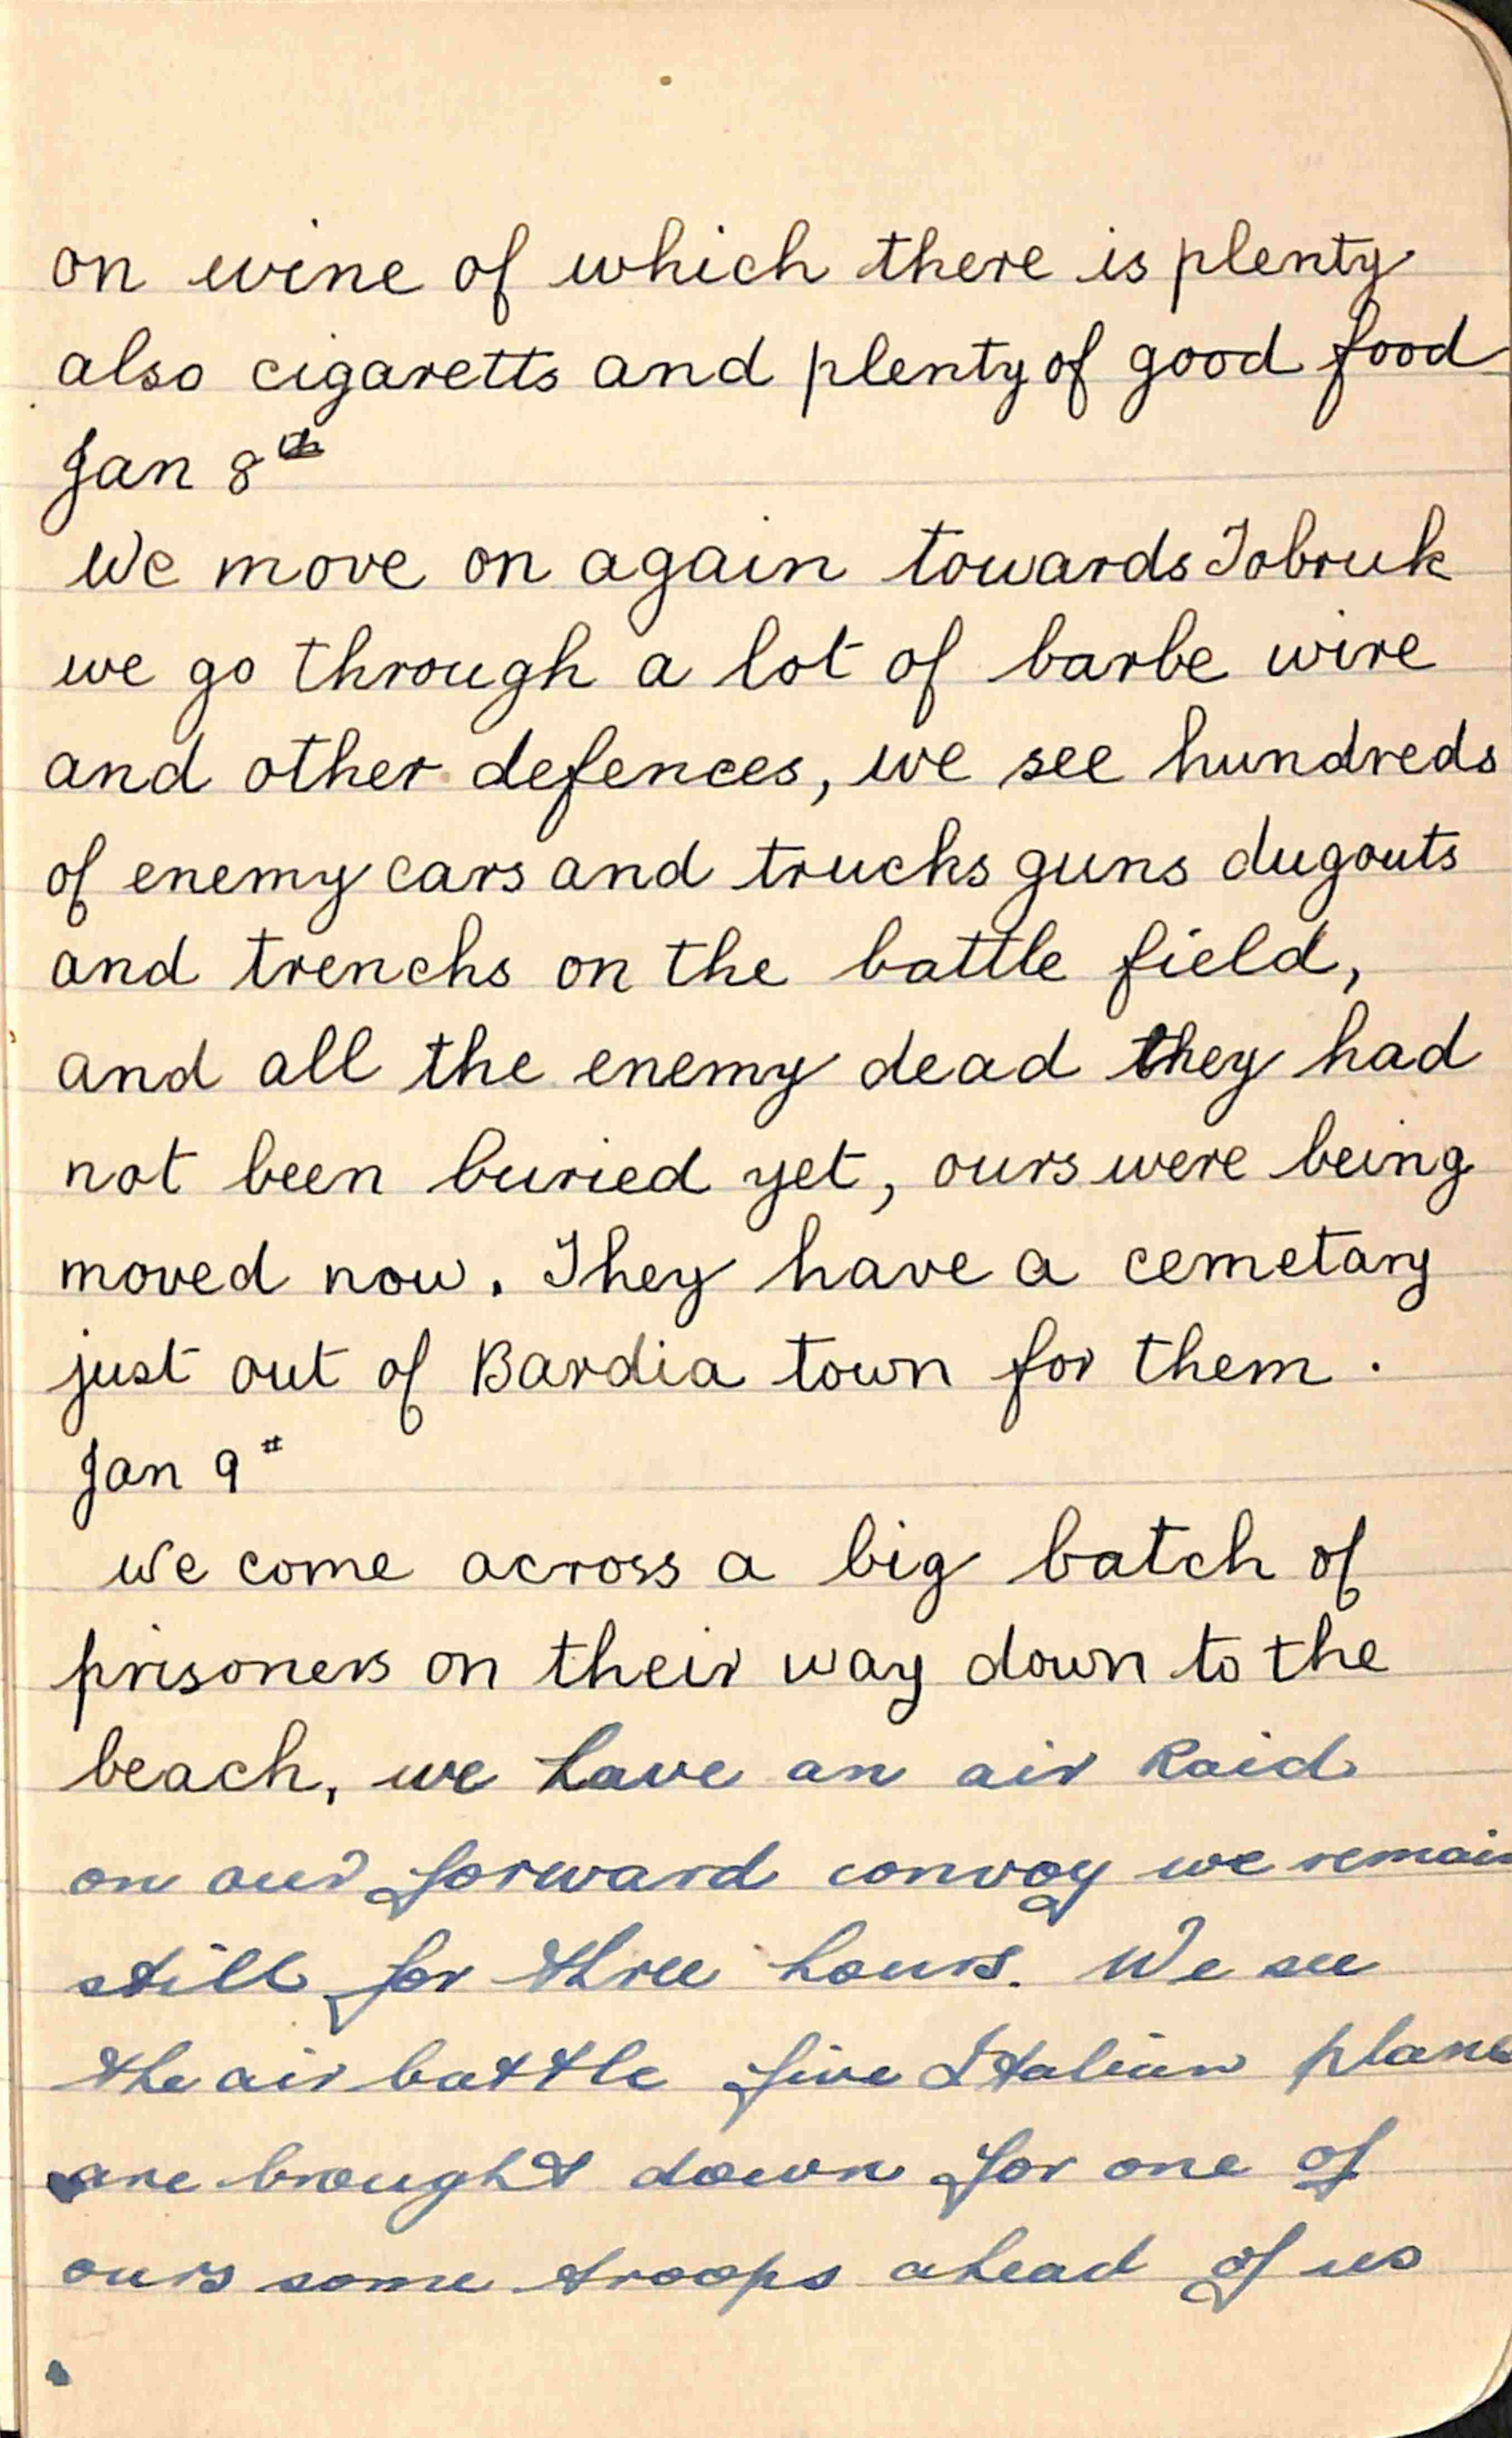 on wine of which there is plenty
also cigaretts and plenty of good food
Jan 8th
We move on again towards Tobruk
we go through a lot of barbe wire
and other defences, we see hundreds
of enemy cars and trucks guns dugouts
and trenchs on the battle field,
and all the enemy dead they had
not been buried yet, ours were being
moved now. They have a cemetary
just out of Bardia town for them.
Jan 9th
We come across a big batch of
prisoners on their way down to the
beach, we have an air Raid
on our forward convoy we remain
still for three hours. We see
the air battle five Italian plane
are brought down for one of
ours some troops ahead of us